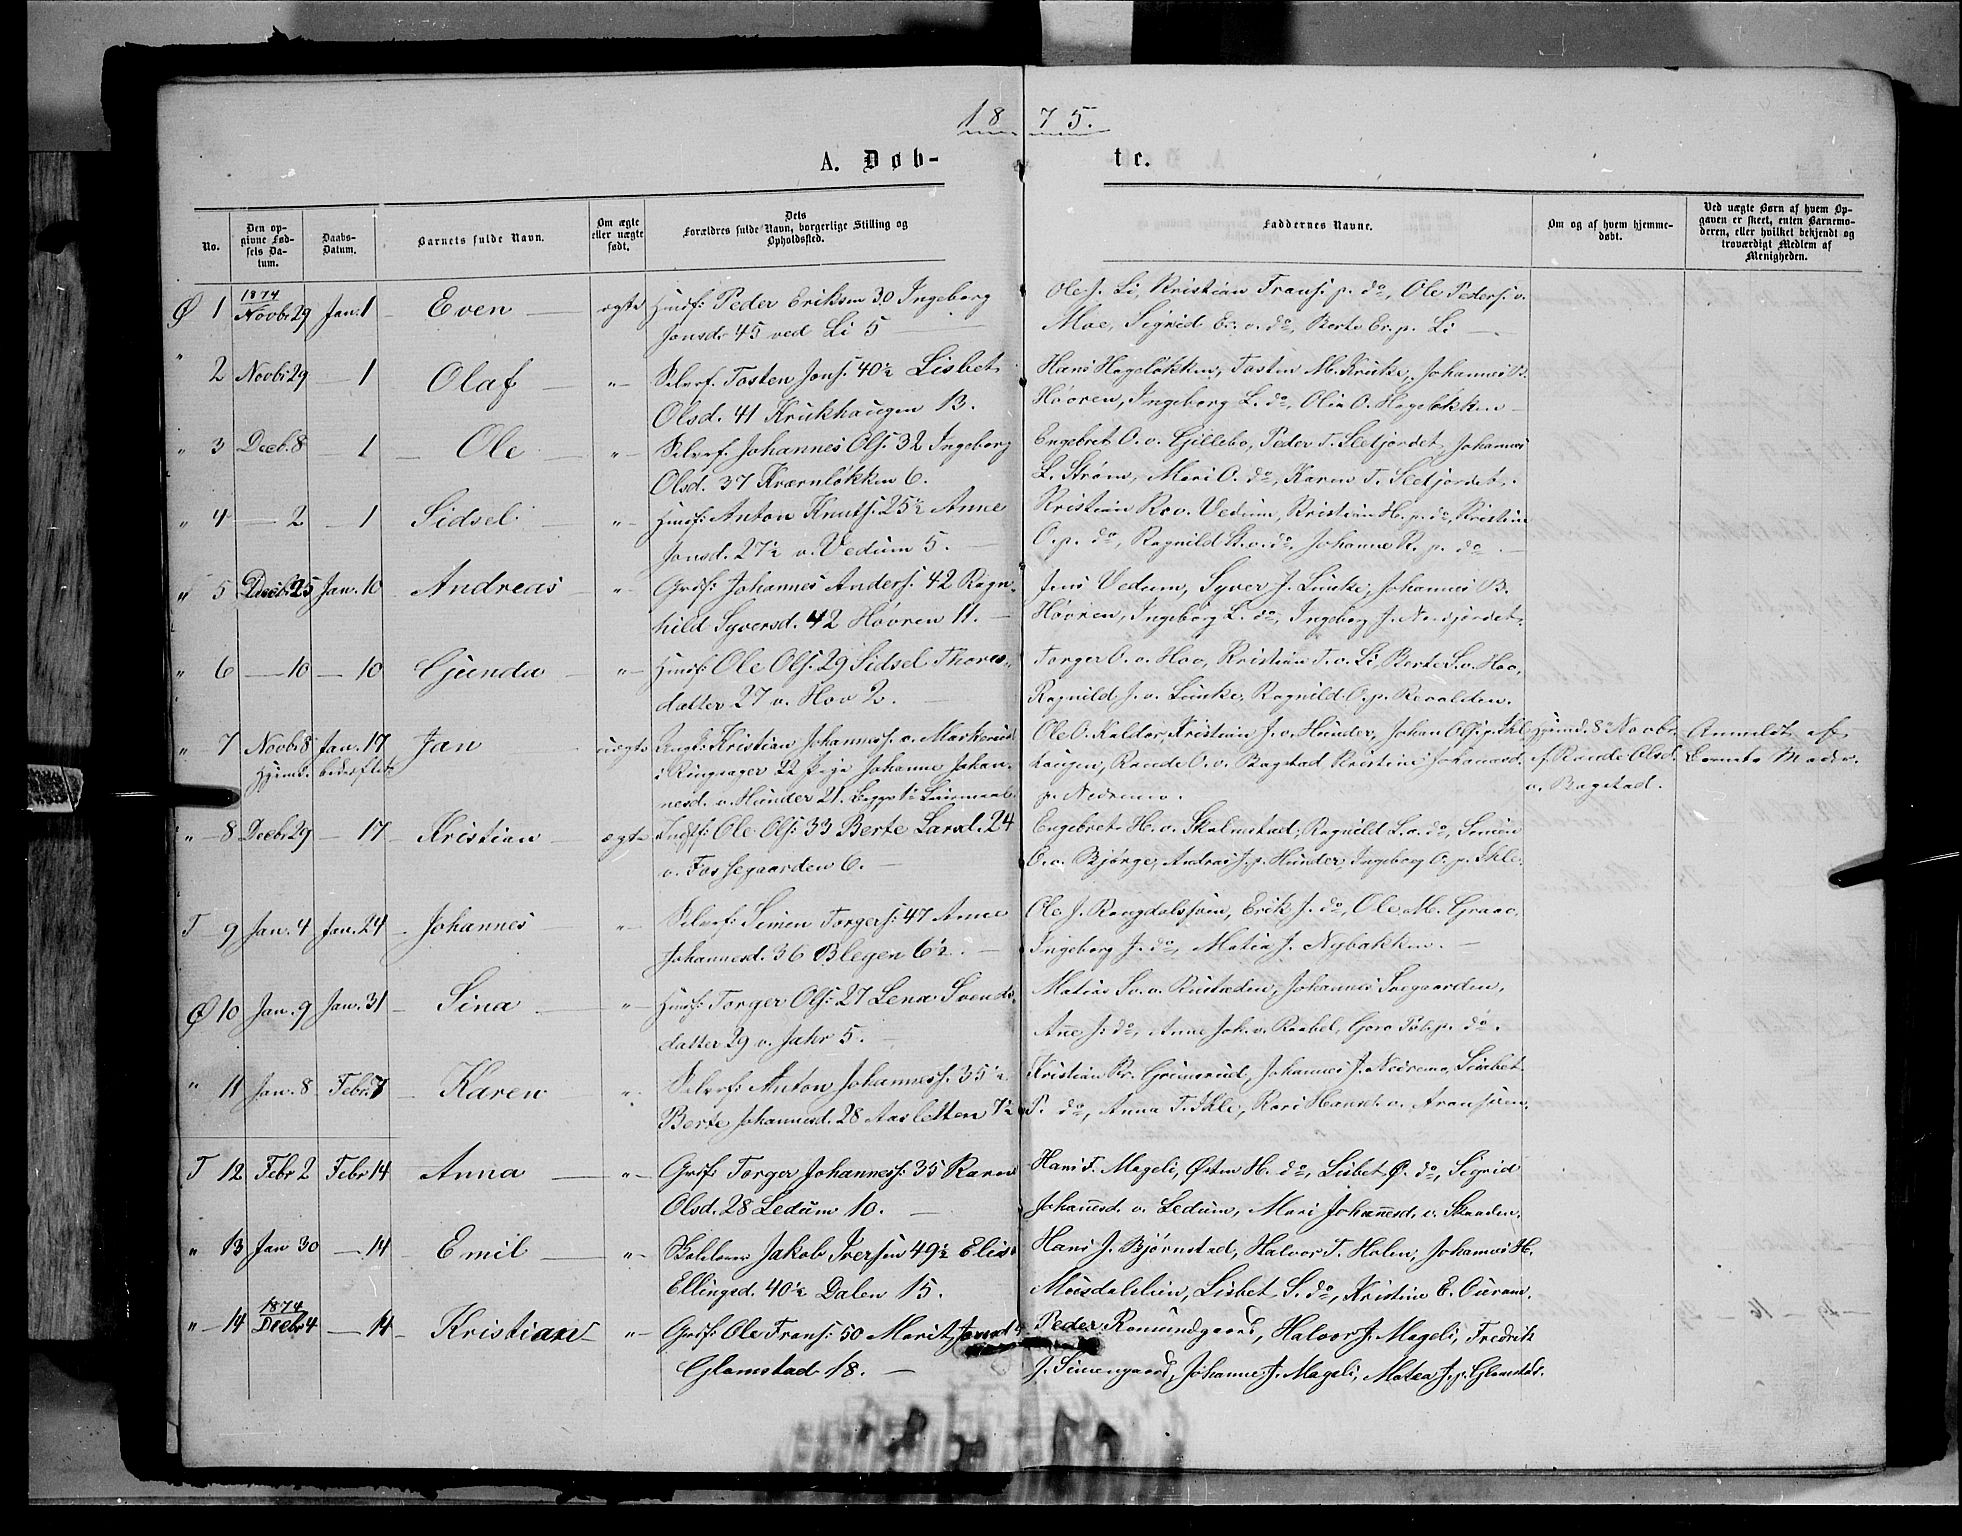 18 75.
A. Døb- te.
No.
Den op-
givne Fød-
sels Da-
tum.
Daabs-
Datum.
Barnets fulde Navn.
Om ægte
eller uægte
født.
Dets
Forældres fulde Navn, borgerlige Stilling og
Opholdssted.
Faddernes Navne.
Om og af hvem hjemme-
døbt.
Ved uægte Børn af hvem Op-
gaven er skeet, enten Barnemo-
deren, eller hvilket bekjendt og
troværdigt Medlem af
Menigheden.
1874
Ø 1 Novbr 29 Jan. 1 Even ægte Husf: Peder Eriksen 30 Ingeborg
Jonsd. 45 ved Li 5
Ole J. Li, Kristian Frans: p. do, Ole Peders: v.
Moe, Sigrid Er. v. do, Berte Er. p. Li
" 2 Novbr 29 — 1 Olaf "— Selverf. Tosten Jons: 40½ Lisbet
Olsd. 41 Krukhaugen 13.
Hans Hageløkken, Tosten M. Kruke, Johannes B.
Høvren, Ingeborg L. do, Olia O. Hageløkken
" 3 Decb. 8 1 Ole "— Selverf. Johannes Ols: 32 Ingeborg
Olsd. 37 Kværnløkken 6.
Engebret O. v. Gillebo, Peder T. Sletjordet, Johannes
L. Strøm, Mari O. do, Karen T. Sletjordet.
" 4 — 2 — 1 Sidsel "— Husf: Anton Knuts: 25½ Anne
Jonsd. 27½ v. Vedum 5.
Kristian K. v. Vedum, Kristian H. p. do, Kristine
O. p. do, Ragnild St. v. do, Johanne R. p. do.
" 5 Decb. 25 Jan. 10 Andreas "— Grdf: Johannes Anders: 42 Ragn-
hild Syversd. 42 Høvren 11.
Jens Vedum, Syver J. Linke, Johannes B.
Høvren, Ingeborg L. do, Ingeborg J. Nordjordet.
" 6 — 10 — 10 Gjenda "— Husf: Ole Ols: 29 Sidsel Thores-
datter 27 v. Hov 2.
Torger O. v. Hov, Kristian T. v. Li, Berte S. v. Hov,
Ragnild J. v. Linke, Ragnild O. p. Revolden.
" 7 Novbr 8 Jan. 17 Jan uægte Ungk: Kristian Johanness: v. Markerud
Hjemd. bekræftet
i Ringsager 22 Pige Johanne Johan-
nesd. v. Hunder 21. Begges 1ste Leiermaal.
Ole O. Kalder, Kristian J. v. Hunder, Johan Ols: p. Ihle
haugen, Rande O. v. Bagstad, Kristine Johannesd.
p. Nedremo.
Hjemd. 8de Novbr
af Rande Olsd.
v. Bagstad.
Anmeldt af
Barnets Moder.
" 8 Decbr 29 — 17 Kristian ægte Indf: Ole Ols: 33 Berte Larsd. 24
v. Fossegaarden 6.
Engebret H. v. Skalmstad, Ragnild L. v. do, Simen
O. v. Bjørge, Andreas J. p. Hunder, Ingeborg O. p. Ihle.
T 9 Jan. 4 Jan. 24 Johannes "— Selverf: Simen Torgers: 47 Anne
Johannesd. 36 Blegen 6½.
Ole J. Rongdalssveen, Erik J. do, Ole M. Graae,
Ingeborg J. do, Matia J. Nybakken.
Ø 10 Jan. 9 Jan. 31 Sina "— Husf: Torger Ols: 27 Lena Svends-
datter 29 v. Jahr 5.
Matias Sv. v. Rustaden, Johannes Svegaarden,
Ane J. do, Anne Joh. v. Raabel, Goro Pals. p. do.
" 11 Jan. 8 Febr. 7 Karen "— Selverf: Anton Johanness: 35½
Berte Johannesd. 28 Aasletten 7½
Kristian Kr. Grimsrud, Johannes J. Nedremo, Lisbet
P. do, Anna T. Ihle, Kari Hansd. v. Aronsveen.
T 12 Febr 2 Febr 14 Anna "— Grdf: Torger Johanness: 35 Karen
Olsd. 28 Ledum 10.
Hans T. Mageli, Østen H. do, Lisbet Ø. do, Sigrid
Johannesd. v. Ledum, Mari Johannesd. v. Skaaden.
" 13 Jan 30 — 14 Emil "— Skolelærer Jakob Iversen 49½ Elise
Ellingsd. 40½ Dalen 15.
Hans J. Bjørnstad, Halvor T. Holen, Johannes H.
Moesdalslien, Lisbet S. do, Kristine E. Øveraan.
1874
" — 14 Decbr 4 — 14 Kristiane "— Grdf: Ole Frans: 50 Marit Jonsd.
Glomstad 18.
Peder Romundgaard, Halvor J. Mageli, Fredrik
J. Simengaard, Johanne J. Mageli, Matea J. p. Glomstad.